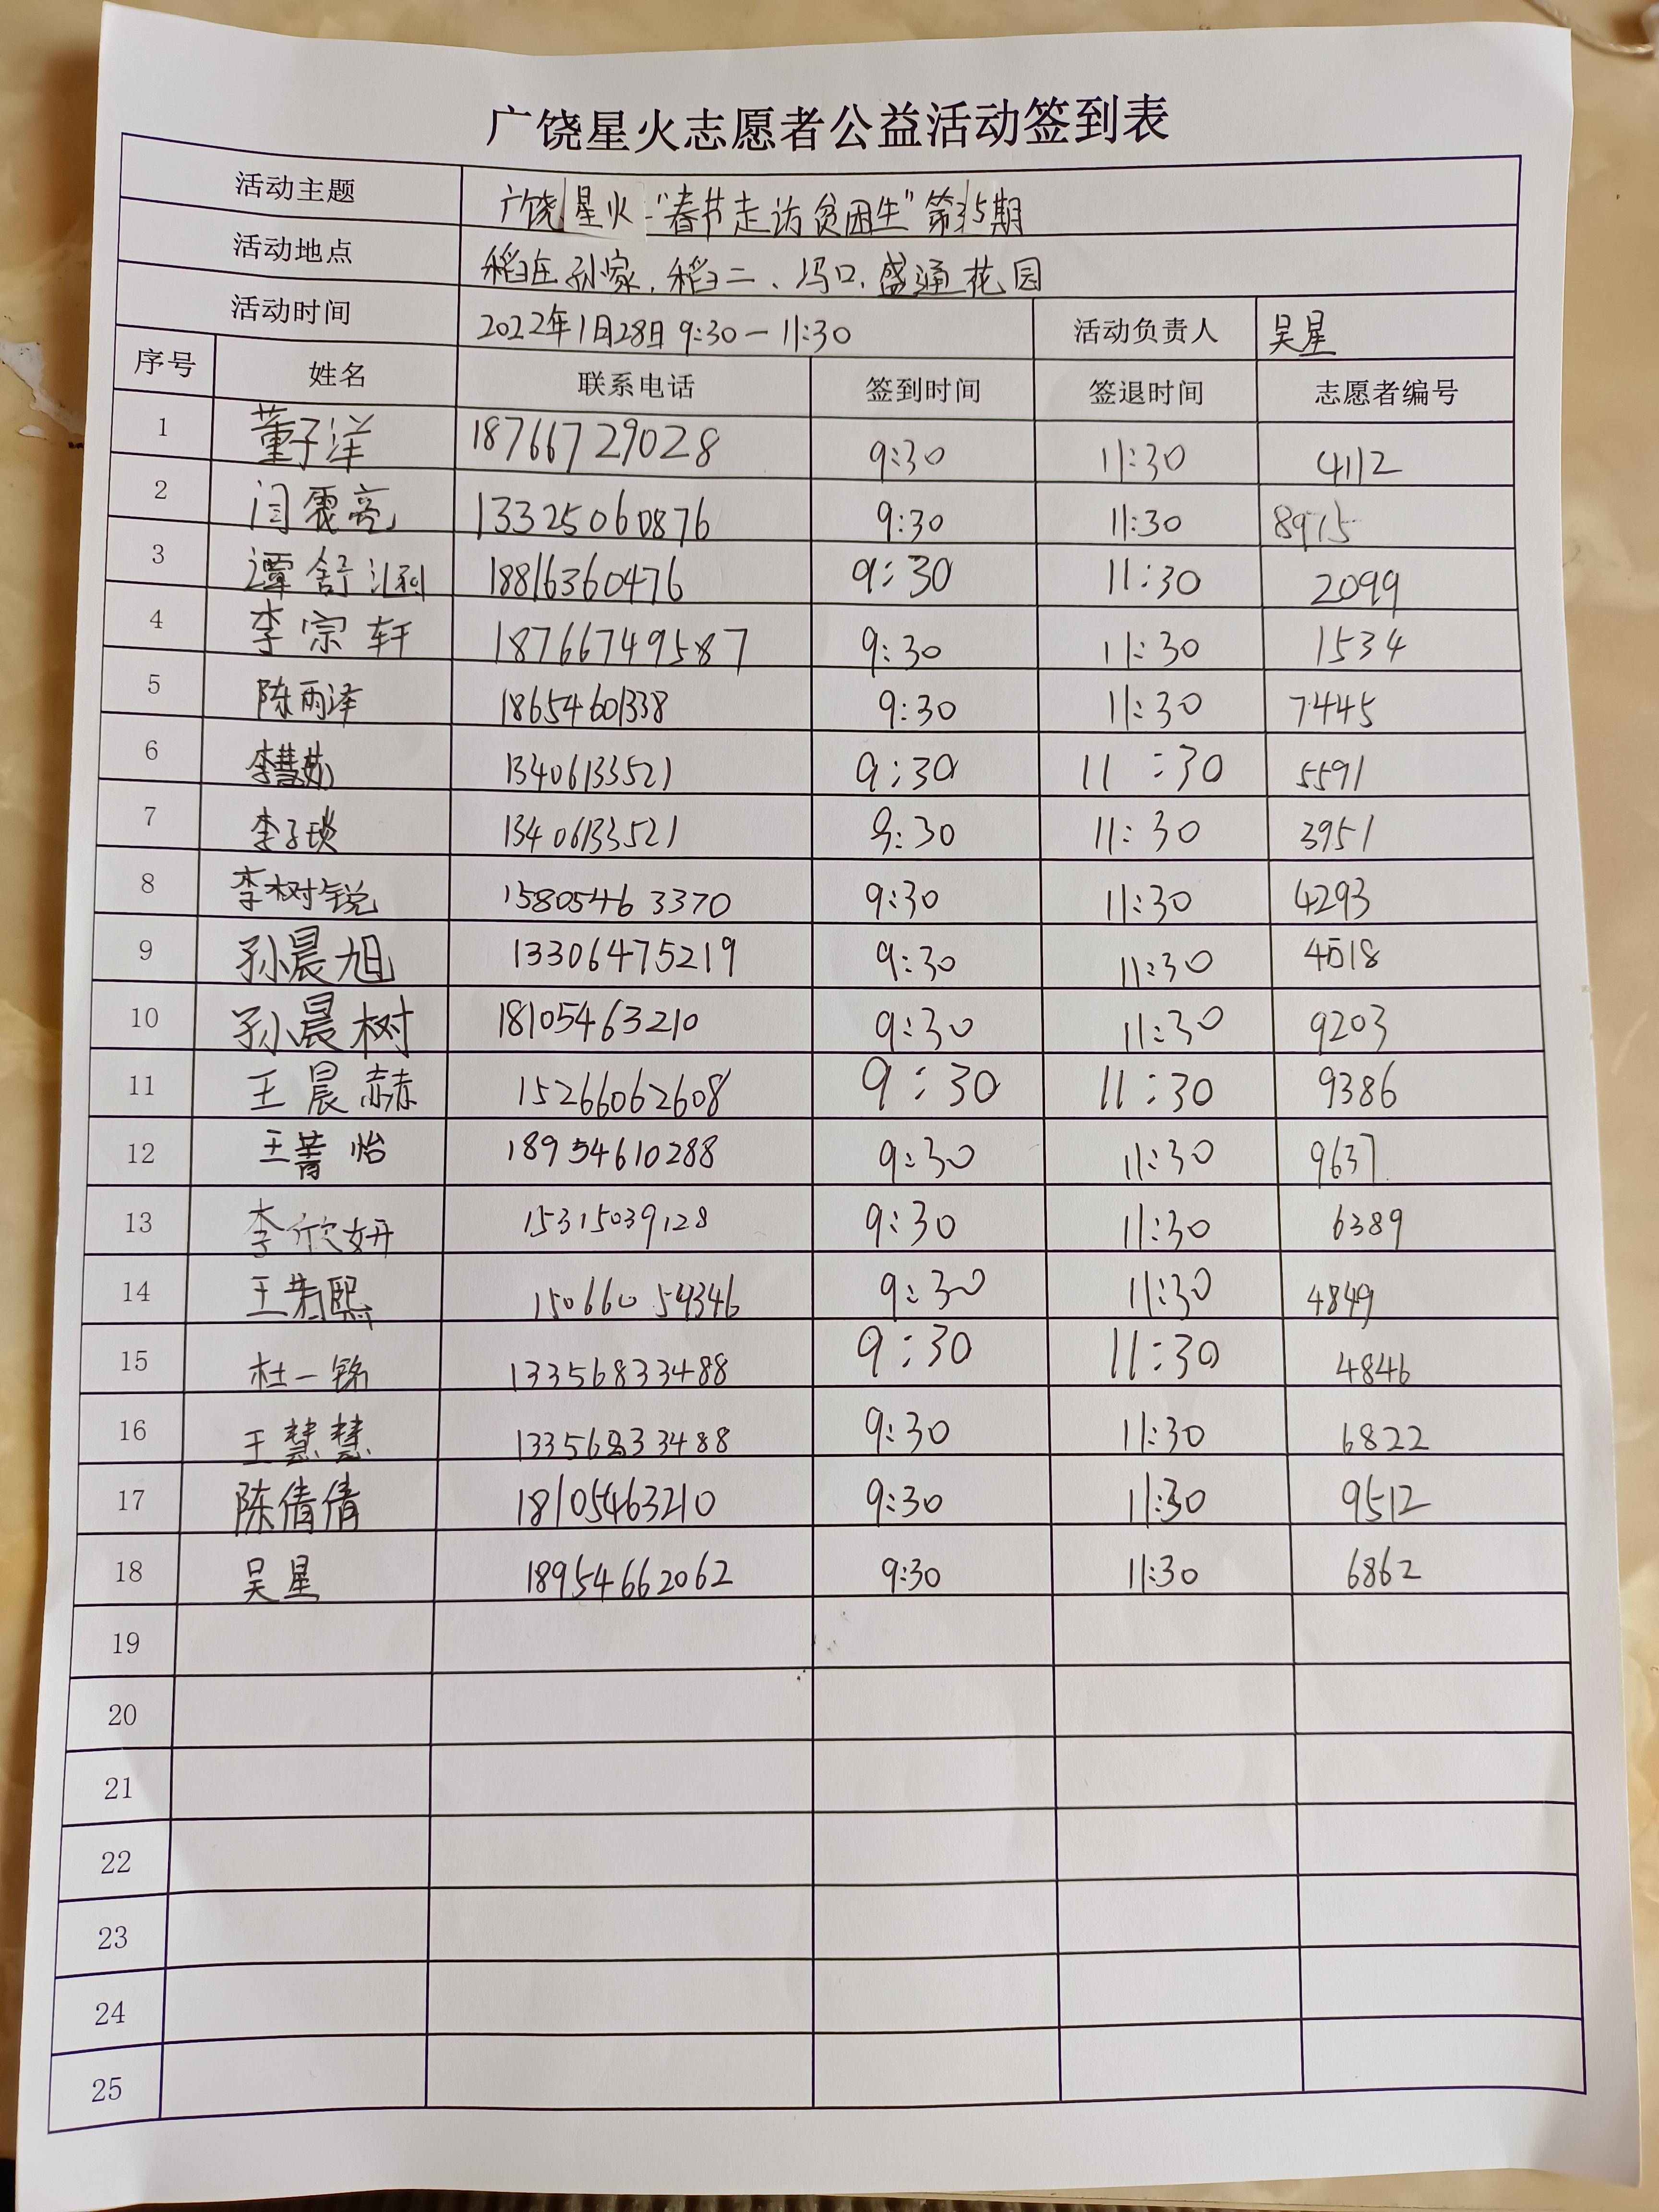 广饶星火志愿者公益活动签到表
活动主题 广饶星火-"春节走访贫困生"第35期
活动地点 稻庄孙家、稻二、冯口、盛通花园
活动时间 2022年1月28日 9:30—11:30 活动负责人 吴星
序号 姓名 联系电话 签到时间 签退时间 志愿者编号
1 董子洋 18766729028 9:30 11:30 4112
2 闫震亮 13325060876 9:30 11:30 8915
3 谭舒 18816360476 9:30 11:30 2099
4 李宗轩 18766749587 9:30 11:30 1534
5 陈雨泽 18654601338 9:30 11:30 7445
6 李慧茹 13406133521 9:30 11:30 5591
7 李子琰 13406133521 9:30 11:30 3951
8 李树锐 15805463370 9:30 11:30 4293
9 孙晨旭 13306475219 9:30 11:30 4018
10 孙晨树 18105463210 9:30 11:30 9203
11 王晨赫 15266062608 9:30 11:30 9386
12 王菁怡 18954610288 9:30 11:30 9637
13 李欣妍 15315039128 9:30 11:30 6389
14 王若熙 15066054346 9:30 11:30 4849
15 杜一铭 13356833488 9:30 11:30 4846
16 王慧慧 13356833488 9:30 11:30 6822
17 陈倩倩 18105463210 9:30 11:30 9512
18 吴星 18954662062 9:30 11:30 6862
19
20
21
22
23
24
25